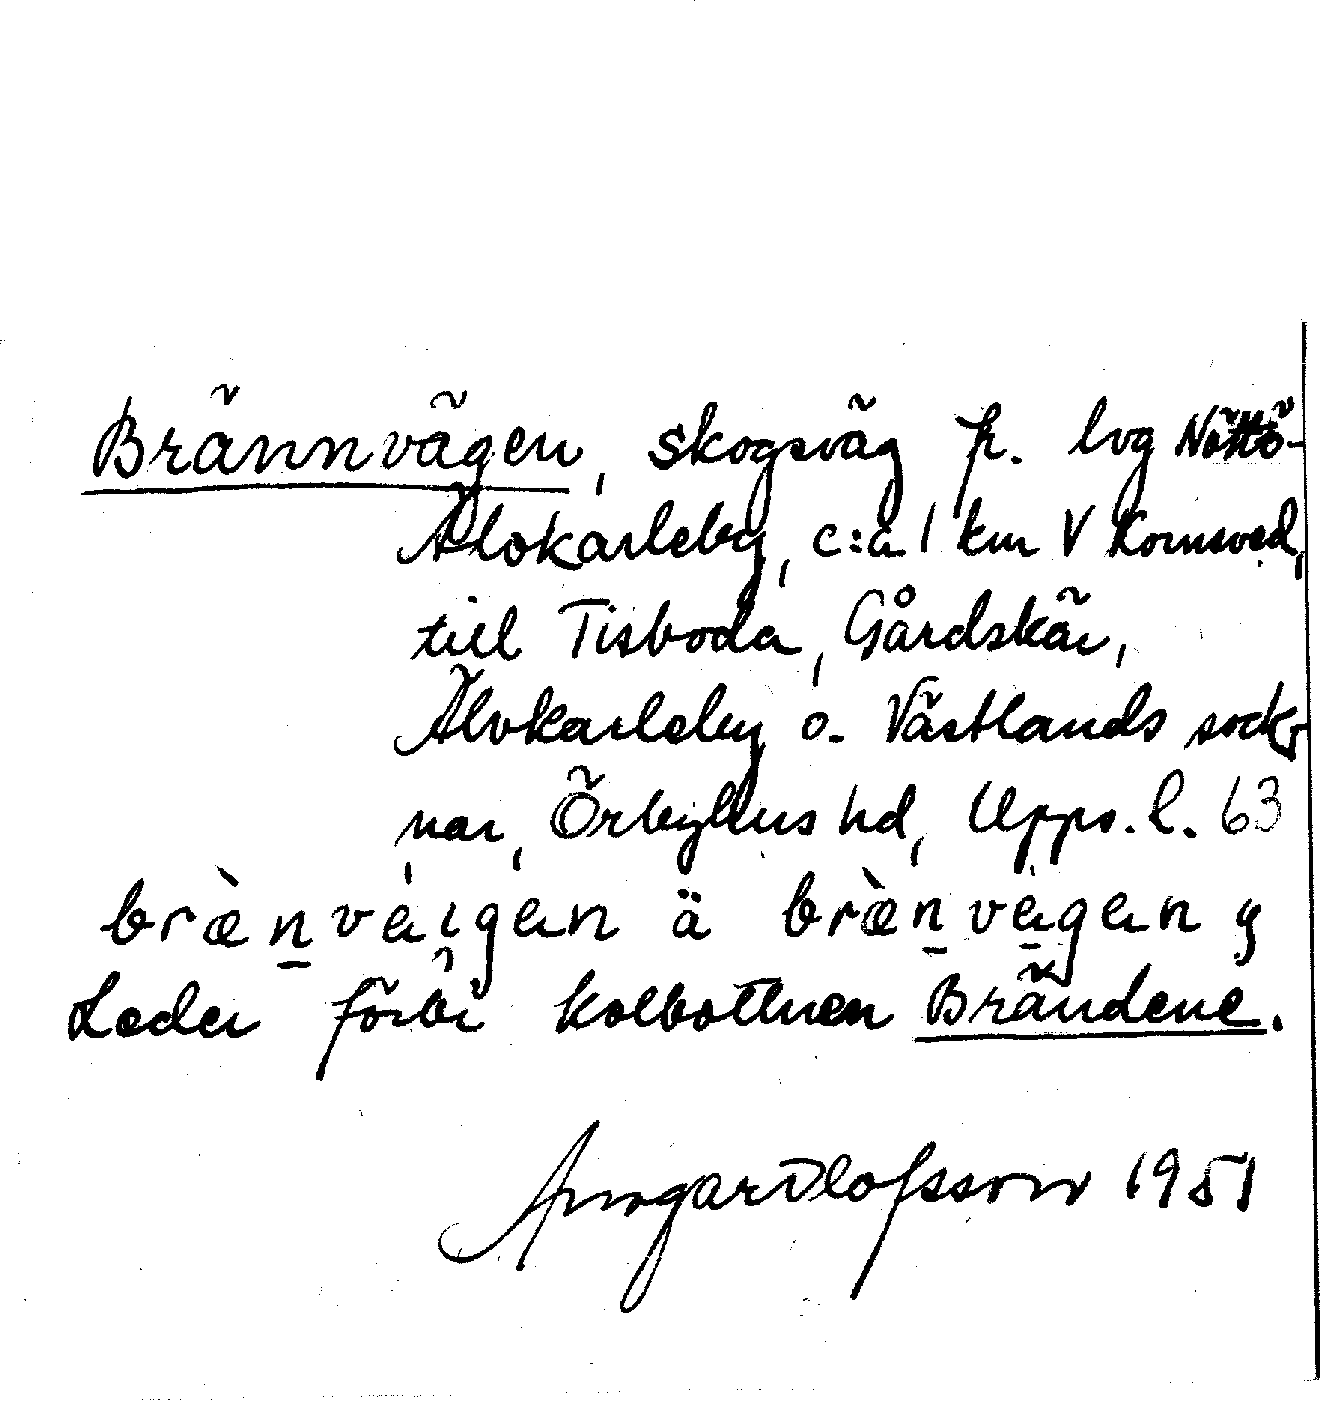 Brännvägen, skogsväg fr. lvg Nöttö-
Älvkarleby, c:a 1 km V Kornsved,
till Tisboda, Gårdskär,
Älvkarleby o. Västlands sock-
nar, Örbyhus hd, Upps. l. 63
bræ̀n̲vèɩgan ä bræ̀n̲vä̲gan
Leder förbi kolbottnen Brändene.
Olofsson 1951